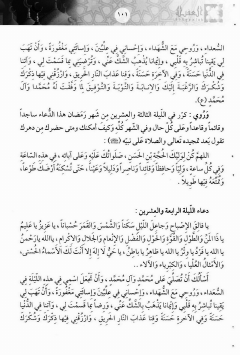 ١٠١
السُّعداء، وَرُوحِي مَعَ الشُّهَداءِ، وَإِحْسانِي فِي عِلِّيِّينَ، وَإِسائَتِي مَغْفُورَةً، وَأَنْ تَهَبَ
لِي يَقِيناً تُباشِرُ بِهِ قَلْبِي، وَإِيماناً يُذْهِبُ الشَّكَّ عَنِّي، وَتُرْضِيَنِي بِما قَسَمْتَ لِي، وَآتِنا
فِي الدُّنْيا حَسَنَةً، وَفِي الآخِرَةِ حَسَنَةً، وَقِنا عَذابَ النَّارِ الْحَرِيقِ، وَارْزُقْنِي فِيها ذِكْرَكَ
وَشُكْرَكَ وَالرَّغْبَةَ إِلَيْكَ وَالإِنابَةَ وَالتَّوْبَةَ وَالتَّوْفِيقَ لِما وَفَّقْتَ لَهُ مُحَمَّداً وَآلَ
مُحَمَّدٍ (ع).
وَرُوِيَ: كرّر في اللّيلة الثالثة والعشرين مِن شَهر رَمَضان هذا الدُّعاء ساجداً
وقائماً وقاعداً وعلى كلّ حال وفي الشهر كُلّه وكيف أمكنك ومتى حضرك من دهرك
تقول بعد تمجيده تعالى والصلاة على نبيّه
اللهمَّ كُنْ لِوَلِيِّكَ الْحُجَّةِ بْنِ الْحَسَنِ، صَلَواتُكَ عَلَيْهِ وَعَلى آبائِهِ، فِي هذِهِ السّاعَةِ
وَفِي كُلِّ ساعَةٍ، وَلِيّاً وَحافِظاً وَقائِداً وَناصِراً وَدَلِيلاً وَعَيْناً، حَتّى تُسْكِنَهُ أَرْضَكَ طَوْعاً،
وَتُمَتِّعَهُ فِيها طَوِيلاً.
دعاء اللّيلة الرابعة والعشرين:
يا فالِقَ الإِصْباحِ وَجاعِلَ اللَّيْلِ سَكَناً وَالشَّمْسِ وَالْقَمَرِ حُسْباناً، يا عَزِيزُ يا عَلِيمُ
يا ذَا الْمَنِّ وَالطَّوْلِ وَالْقُوَّةِ وَالْحَوْلِ وَالْفَضْلِ وَالإِنْعامِ وَالْجَلالِ وَالإِكْرامِ، يا اللهُ يا رَحْمنُ
الْحُسْنى،
وَالأَمْثالُ الْعُلْيا، وَالْكِبْرِياءُ وَالآلاءُ..
أَسْأَلُكَ أَنْ تُصَلِّيَ عَلى مُحَمَّدٍ وَآلِ مُحَمَّدٍ، وَأَنْ تَجْعَلَ اسْمِي فِي هذِهِ اللَّيْلَةِ فِي
السُّعَداءِ، وَرُوحِي مَعَ الشُّهَداءِ، وَإِحْسانِي فِي عِلِّيِّينَ، وَإِسائَتِي مَغْفُورَةً، وَأَنْ تَهَبَ لِي
يَقِيناً تُباشِرُ بِهِ قَلْبِي وَإِيماناً يَذْهَبُ بِالشَّكِّ عَنِّي، وَرِضىً بِما قَسَمْتَ لِي، وَآتِنا فِي الدُّنْيا
حَسَنَةً وَفِي الآخِرَةِ حَسَنَةً وَقِنا عَذابَ النَّارِ الْحَرِيقِ، وَارْزُقْنِي فِيها ذِكْرَكَ وَشُكْرَكَ